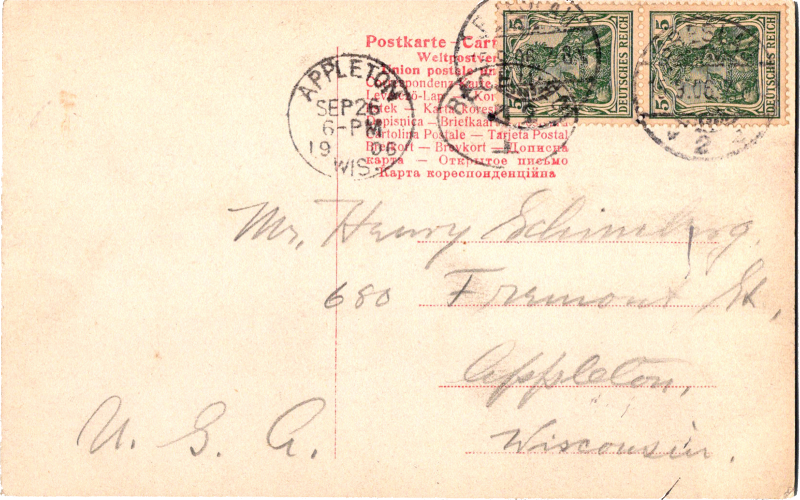 Postkarte
Weltpostver
Union postale un
Correspondenz-Karte
Levelező-Lap
Dopisnica — Briefkaar
Cartolina Postale — Tarjeta Postal
Brefkort — Brevkort — Дописна
карта — Открытое письмо
Карта кореспонденційна
APPLETON
SEP 26
6-PM
19 06
WIS.
5 5
DEUTSCHES REICH
5 5
DEUTSCHES REICH
2
Mr. Henry
680 Fremont St,
Appleton,
Wisconsin.
U. S. A.